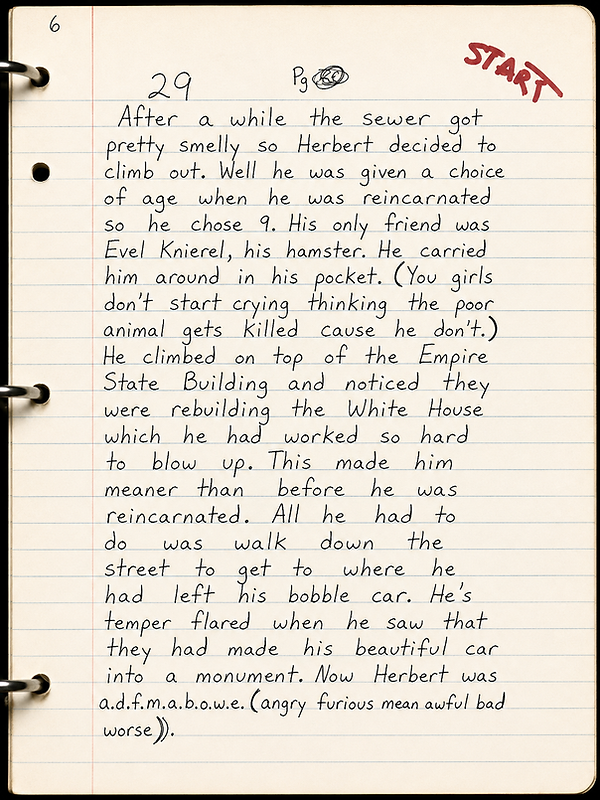 6
START
29 Pg
After a while the sewer got
pretty smelly so Herbert decided to
climb out. Well he was given a choice
of age when he was reincarnated
so he chose 9. His only friend was
Evel Knierel, his hamster. He carried
him around in his pocket. (You girls
don't start crying thinking the poor
animal gets killed cause he don't.)
He climbed on top of the Empire
State Building and noticed they
were rebuilding the White House
which he had worked so hard
to blow up. This made him
meaner than before he was
reincarnated. All he had to
do was walk down the
street to get to where he
had left his bobble car. He's
temper flared when he saw that
they had made his beautiful car
into a monument. Now Herbert was
a.d.f.m.a.b.o.w.e. (angry furious mean awful bad
worse)).